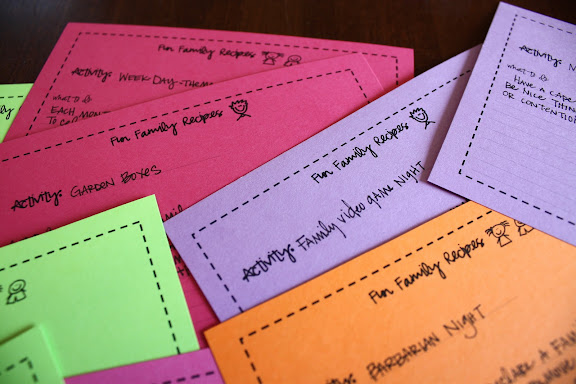 Fun Family Recipes
Activity: WEEK DAY-THEM
WHAT TO DO
EACH
TO
Fun Family Recipes
Activity: GARDEN BOXES
Fun Family Recipes
Activity: Family video game NIGHT
Activity:
WHAT TO DO
HAVE A CAPE
BE NICE THIN
OR CONTENTIO
Fun Family Recipes
Activity: BARBARIAN NIGHT
A FAM